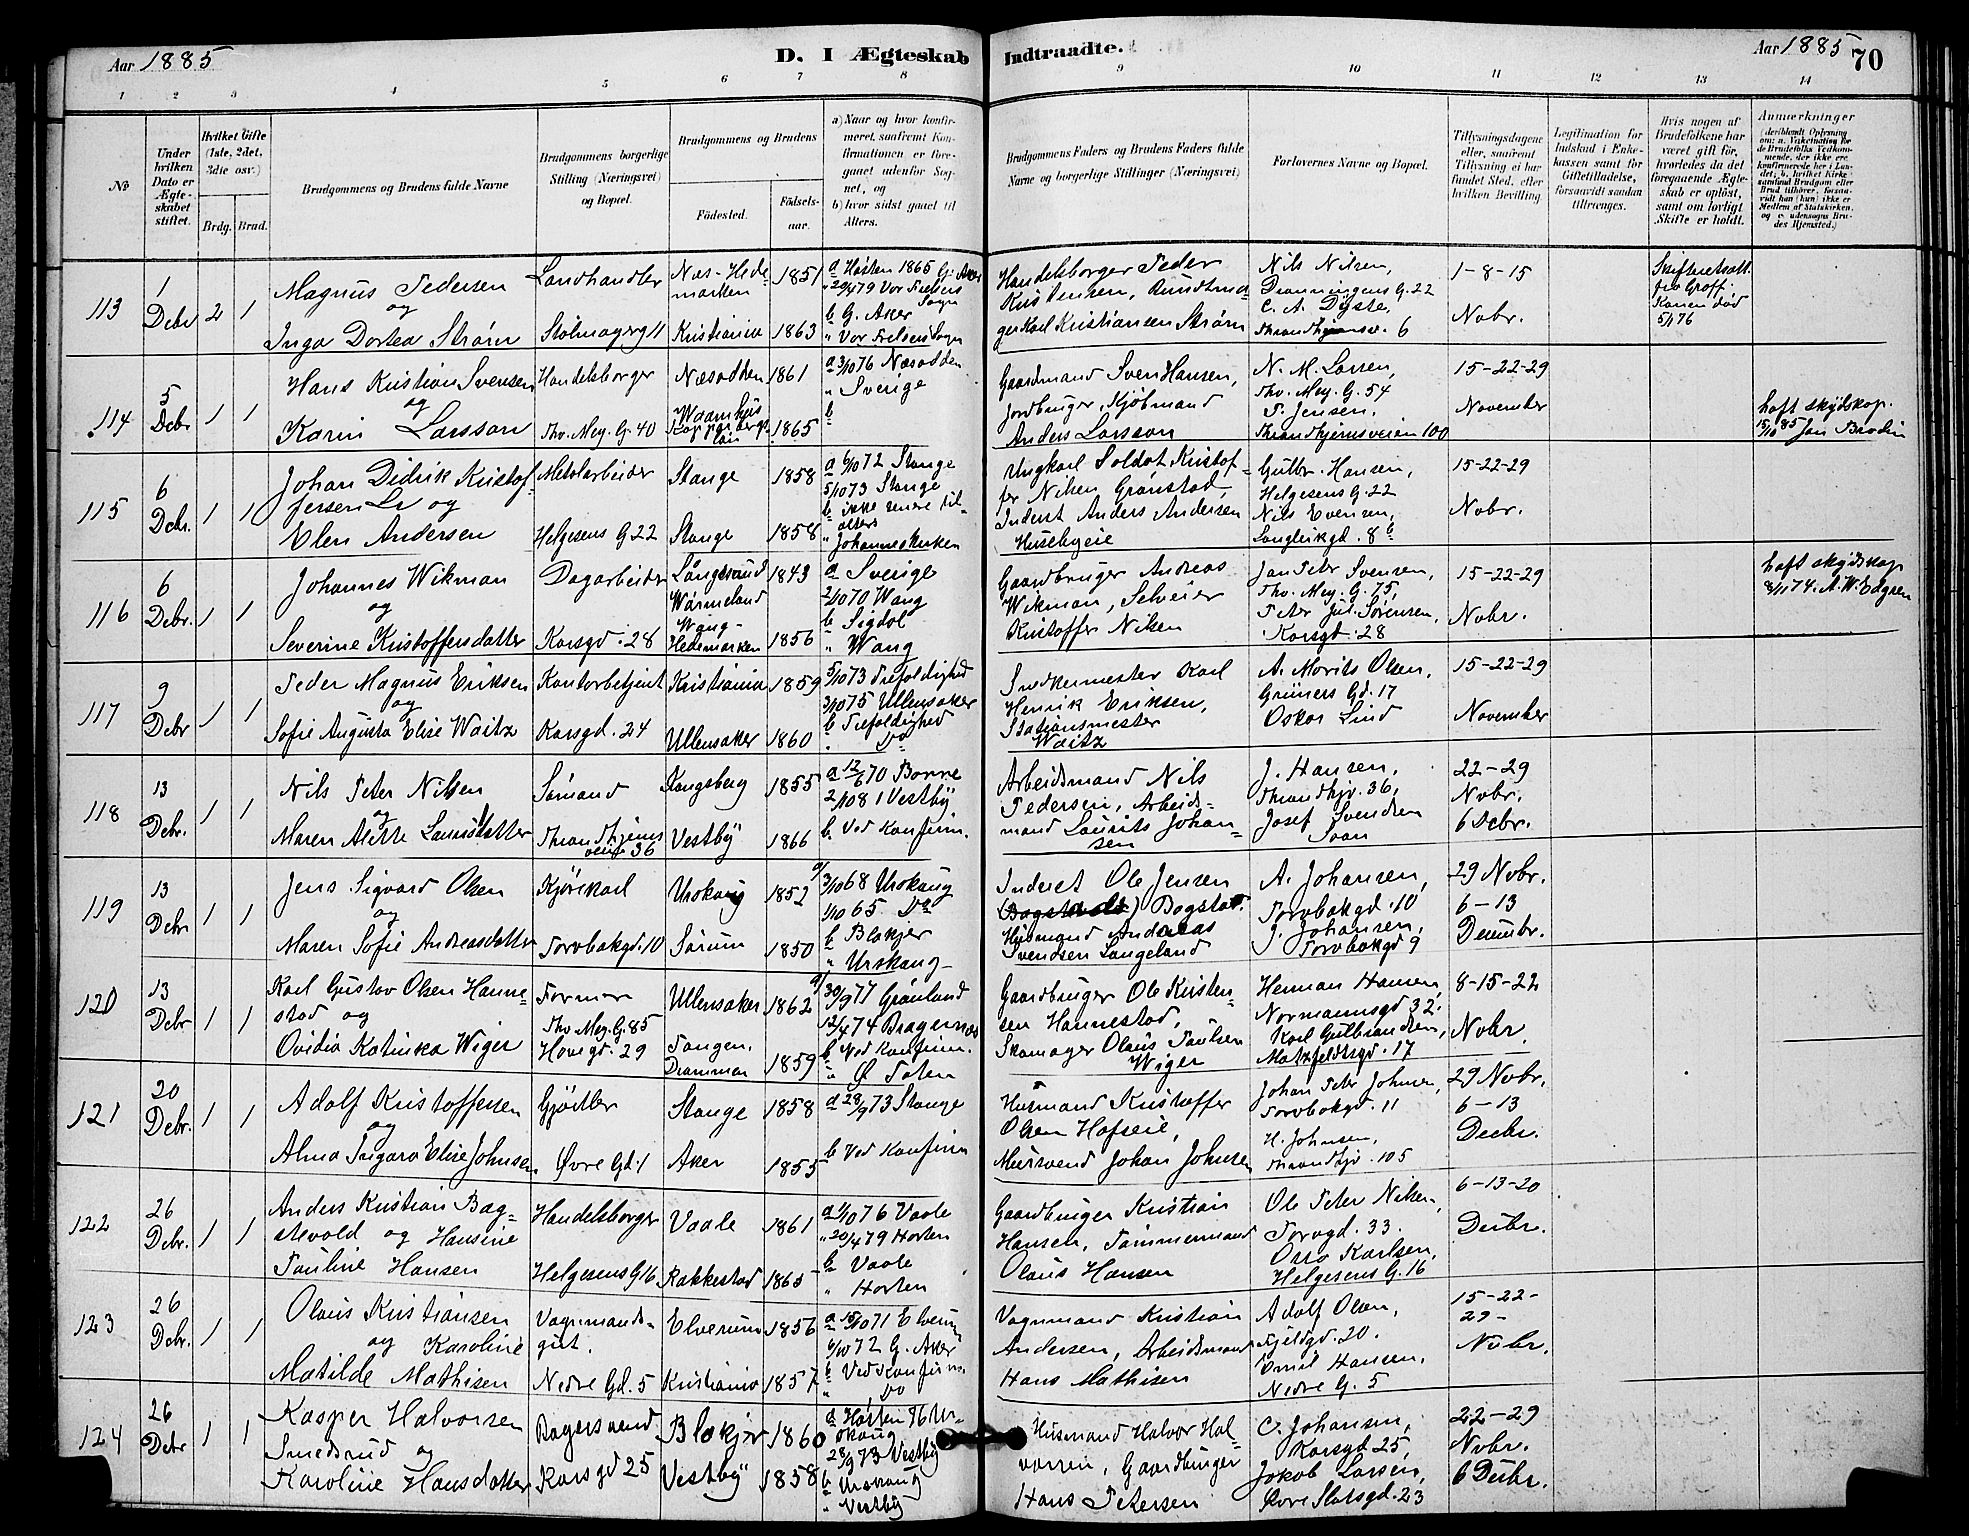 Aar 1885
D. I Ægteskab
Indtraadte.
Aar 1885
70
1 2 3 4 5 6 7 8
9 10 11 12 13 14
No
Under
hvilken
Dato er
Ægte-
skabet
stiftet.
Hvilket Gifte
(1ste, 2det,
3die osv.)
Brdg. Brud.
Brudgommens og Brudens fulde Navne
Brudgommens borgerlige
Stilling (Næringsvei)
og Bopæl.
Brudgommens og Brudens
Födested.
Födsels-
aar.
a) Naar og hvor konfir-
meret, saafremt Kon-
firmationen er fore-
gaaet udenfor Sog-
net, og
b) hvor sidst gaaet til
Alters.
Brudgommens Faders og Brudens Faders fulde
Navne og borgerlige Stillinger (Næringsvei)
Forlovernes Navne og Bopæl.
Tillysningsdagene
eller, saafremt
Tillysning ei har
fundet Sted, efter
hvilken Bevilling.
Legitimation for
Indskud i Enke-
kassen samt for
Giftetilladelse,
forsaavidt saadan
tiltrænges.
Hvis nogen af
Brudefolkene har
været gift før,
hvorledes da det
foregaaende Ægte-
skab er opløst,
samt om lovligt
Skifte er holdt.
Anmærkninger
113
1
Debr
2 1
Magnus Pedersen
og
Inga Dortea Strøm
Landhandler
Stolmagerg 11
Næs-Hede
marken
Kristiania
1851
1863
a Høsten 1865 G. Aker
" 20/4 79 Vor Frelsers
Sogn
b G. Aker
" Vor Frelsers Sogn
Handelsborger Peder
Kristensen,
ger Karl Kristiansen Strøm
Nils Nilsen,
Dronningens G. 22
C. A. Dyste,
Throndhjemsv. 6
1-8-15
Nobr.
Skifteretsatt.
fra Groff.
Konen død
5/1 76
114
5
Debr
1 1
Hans Kristian Svensen
og
Karin Larsson
Handelsborger
Thv. Mey. G. 40
Næsodden
Kopparbergs
län
1861
1865
a 3/10 76 Næsodden
" Sverige
b
Gaardmand Sven Hansen,
Jordbruger, Kjöbmand
Anders Larsson
N. M. Larsen,
Thv. Mey. G. 54
P. Jensen.
Throndhjemsveien 100
15-22-29
November
haft skydskop.
15/10 85 Jan Brodin
115
6
Debr.
1 1
Johan Didrik Kristof-
fersen Lr og
Elen Andersen
Metalarbeider
Helgesens G 22
Stange
Stange
1858
1858
a 6/10 72 Stange
5/10 73 Stange
b ikke senere til-
alters
" Johanneskirken
Ungkarl Soldat Kristof-
fer Nilsen Grønstad,
Inderst Anders Andersen
Husebyeie
Gulbr. Hansen,
Helgesens G. 22
Nils Evensen,
Langleikgd. 8b
15-22-29
Nobr.
116
6
Debr.
1 1
Johannes Wikman
og
Severine Kristoffersdatter
Dagarbeider
Korsgd. 28
Långserud
Wärmeland
Wang-
Hedemarken
1843
1856
a Sverige
2/10 70 Wang
b Sigdal
" Wang
Gaardbruger Andreas
Wikman, Selveier
Kristoffer Nilsen
Jan Peter Svensen,
Thv. Mey. G. 75,
Peter Jul. Sørensen,
Korsgd. 28
15-22-29
Nobr.
haft skydskop
8/1 74. A. W. Edgren
117
9
Debr
1 1
Peder Magnus Eriksen
og
Sofie Augusta Elise Waitz
Kontorbetjent
Korsgd. 24
Kristiania
Ullensaker
1859
1860
5/10 73 Trefoldighed
3/10 75 Ullensaker
b Trefoldighed
" Do
Snedkermester Karl
Henrik Eriksen,
Stationsmester
Waitz
A. Morits Olsen,
Grüners Gd. 17
Oskar Lind
15-22-29
November
118
13
Debr.
1 1
Nils Peter Nilsen
og
Maren Alette Lauritsdatter
Sømand
Throndhjems
veien 36
Kongsberg
Vestby
1855
1866
a 12/6 70 Borre
2/10 81 Vestby
b. Ved Konfirm.
Arbeidsmand Nils
Pedersen, Arbeids-
mand Laurits Johan-
sen
J. Hansen,
Throndhjv. 36,
Josef Svendsen
Soon
22-29
Nobr.
6 Debr.
119
13
Debr
1 1
Jens Sigvard Olsen
og
Maren Sofie Andreasdatter
Kjørekarl
Torvbakgd. 10
Urskoug
Sørum
1852
1850
a/ 3/10 68 Urskoug
1/10 65 Do
b Blakjer
" Urskoug
Inderst Ole Jensen
Bogstad.
Husmand Andreas
Svendsen Langeland
A. Johansen,
Torvbakgd. 10
J. Johansen,
Torvbakgd 9
29 Nobr.
6-13
Decembr.
120
13
Debr
1 1
Karl Gustav Olsen Hanne-
stad og
Ovidia Katinka Wiger
Former
Thv. Mey. G. 85
Hovegd. 29
Ullensaker
Tangen,
Drammen
1862
1859
a/ 30/9 77 Grønland
12/4 74 Bragernæs
b Ved Konfirm.
" Ø Toten
Gaardbruger Ole Kristen-
sen Hannestad,
Skomager Olaus Paulsen
Wiger
Herman Hansen,
Normannsgd 32.
Karl Gulbrandsen,
Motzfeldtsgd. 17
8-15-22
Nobr.
121
20
Debr.
1 1
Adolf Kristoffersen
og
Alma Elise Johnsen
Gjørtler
Øvre Gd. 1
Stange
Aker
1858
1855
a 28/9 73 Stange
b Ved Konfirm
Husmand Kristoffer
Olsen Hofseie,
Mursvend Johan Johnsen
Johan Peter Johnsen,
Torvbakgd. 11
H. Johnsen,
Throndhjv. 105
29 Nobr.
6-13
Decbr.
122
26
Debr.
1 1
Anders Kristian Bag-
stevold og Hansine
Pauline Hansen
Handelsborger
Helgesens G 16
Vaale
Rakkestad
1861
1865
a 1/10 76 Vaale
" 20/4 79 Horten
b Vaale
" Horten
Gaardbruger Kristian
Hansen, Tømmermand
Olaus Hansen
Ole Peter Nilsen,
Torvgd. 33.
Otto Karlsen,
Helgesens G. 16
6-13-20
Decbr.
123
26
Debr.
1 1
Olaus Kristiansen
og Karoline
Matilde Mathisen
Vognmands-
gut.
Nedre Gd. 5
Elverum
Kristiania
1856
1857
a 15/10 71 Elverum
6/10 72 G. Aker
b Ved Konfirm.
" Do
Vognmand Kristian
Andersen, Arbeidsmand
Hans Mathisen
Adolf Olsen,
Fjeldgd. 20.
Emil Hansen,
Nedre G. 5
15-22-
29-
Nobr.
124
26
Debr
1 1
Kasper Halvorsen
Smedsrud og
Karoline Hansdatter
Bagersvend
Korsgd 25
Blakjer
Vestby
1860
1858
a Høsten 76 Ur-
skoug
28/9 73 Vestby
b Urskoug
" Vestby
Husmand Halvor Hal-
vorsen, Gaardbruger
Hans Petersen
C. Johansen,
Korsgd 25,
Jakob Larsen,
Øvre Slotsgd. 23
22-29
Nobr.
6 Decbr.